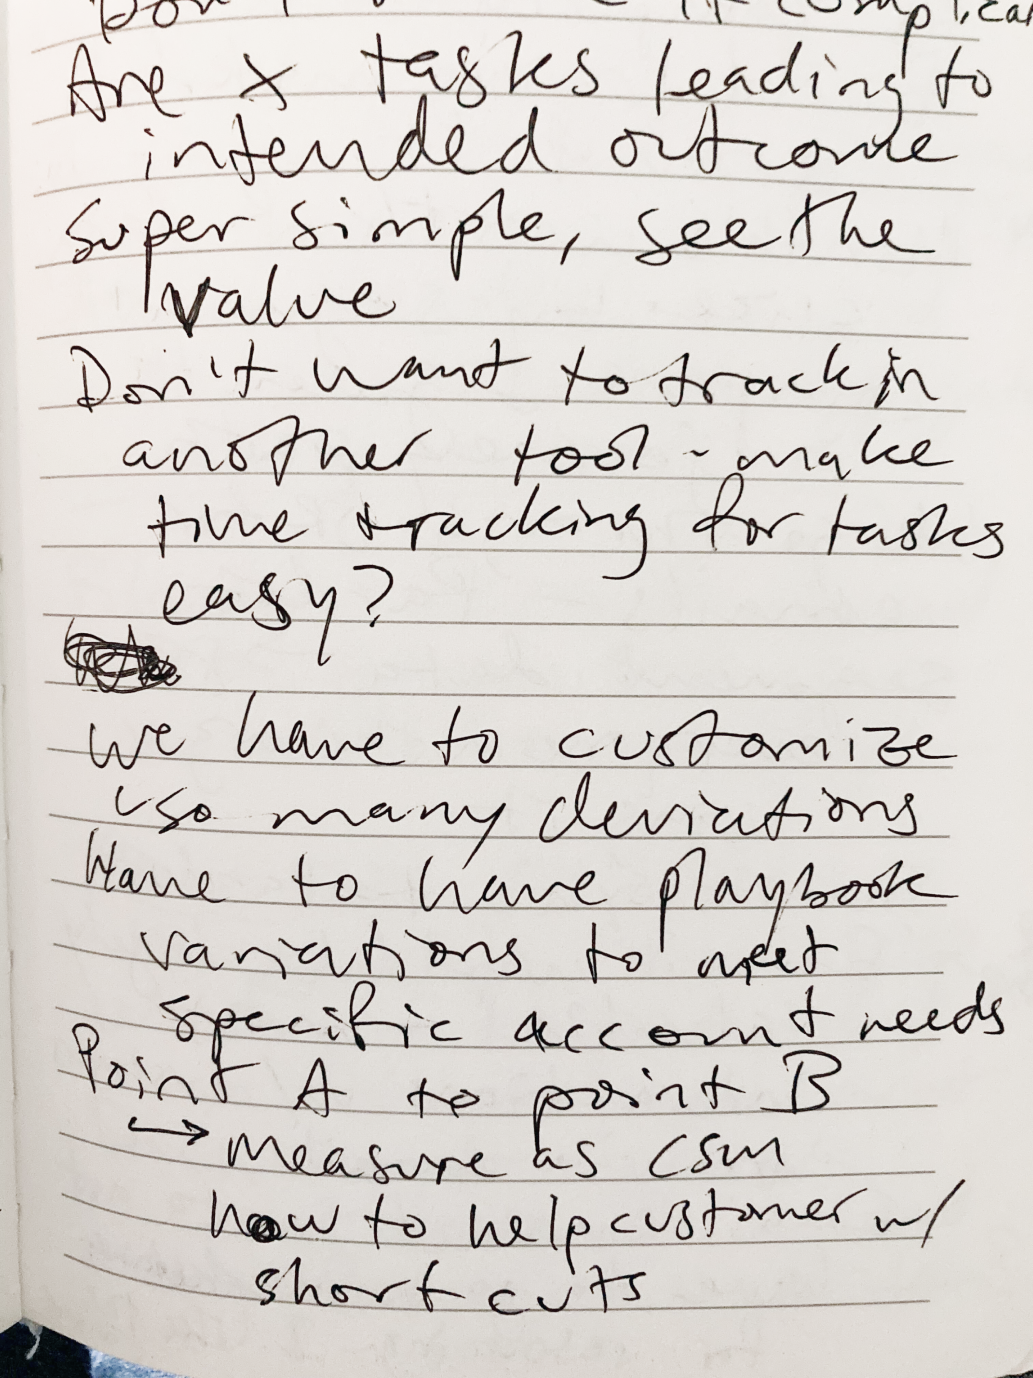 Are x tasks leading to
intended outcome
Super simple, see the
value
Don't want to track in
another tool - make
time tracking for tasks
easy?
We have to customize
so many deviations
Have to have playbook
variations to meet
specific account needs
Point A to point B
→ measure as CSM
how to help customer w/
short cuts